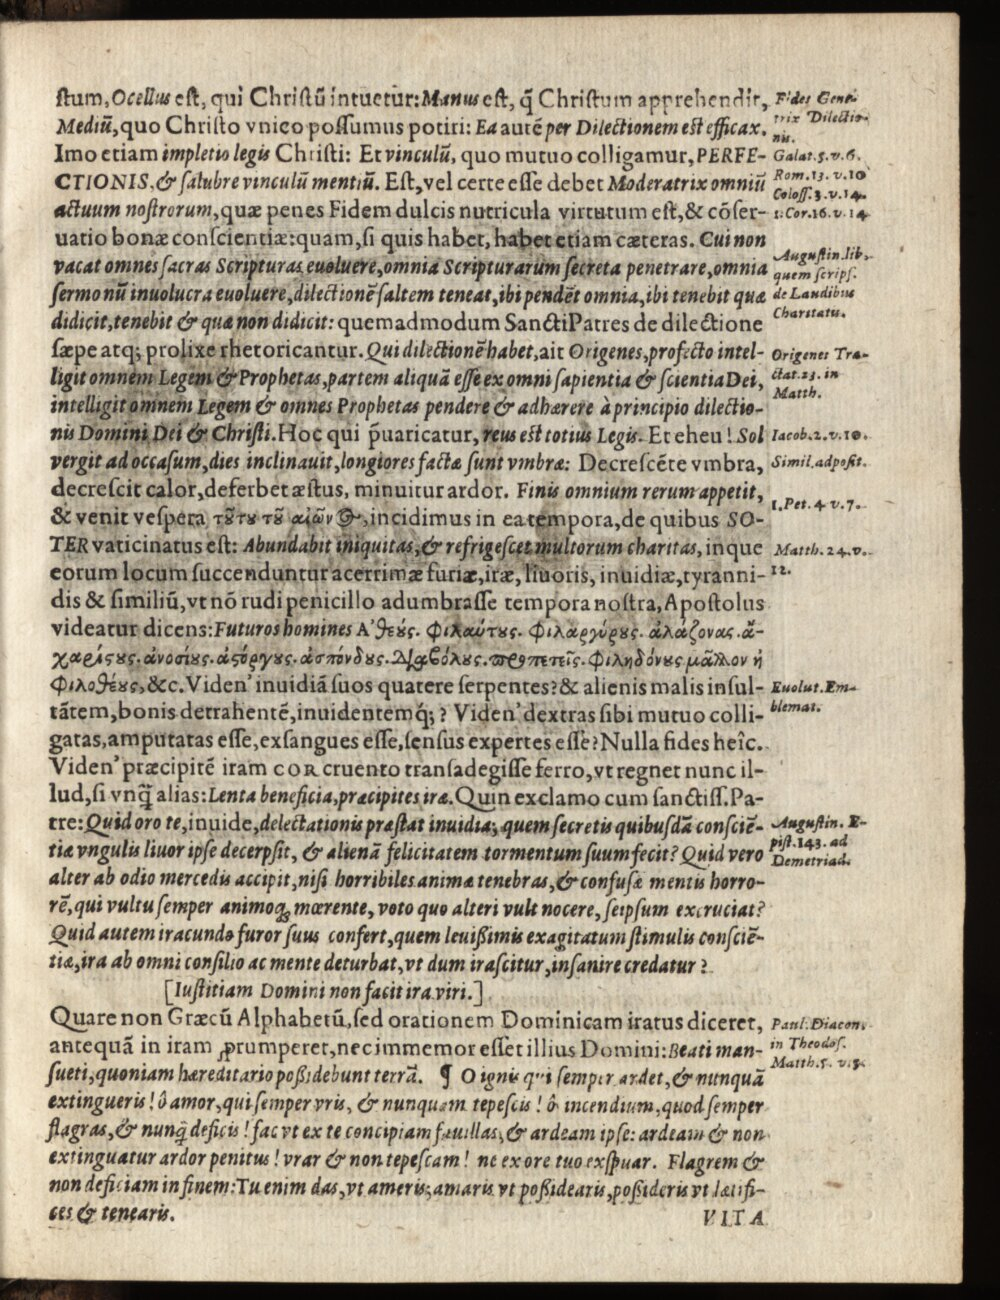 stum, Ocellus est, qui Christū intuetur: Manus est, q̄ Christum apprehendit,
Mediū, quo Christo vnico possumus potiri: Ea autē per Dilectionem est efficax.
Imo etiam impletio legis Christi: Et vinculū, quo mutuo colligamur, PERFE-
CTIONIS, & salubre vinculū mentiū. Est, vel certe esse debet Moderatrix omniū
actuum nostrorum, quæ penes Fidem dulcis nutricula virtutum est, & cōser-
uatio bonæ conscientiæ: quam, si quis habet, habet etiam cæteras. Cui non
vacat omnes sacras Scripturas euoluere, omnia Scripturarum secreta penetrare, omnia
sermonū inuolucra euoluere, dilectionē saltem teneat, ibi pendēt omnia, ibi tenebit quæ
didicit, tenebit & quæ non didicit: quemadmodum Sancti Patres de dilectione
sæpe atq; prolixe rhetoricantur. Qui dilectionē habet, ait Origenes, profecto intel-
ligit omnem Legem & Prophetas, partem aliquā esse ex omni sapientia & scientia Dei,
intelligit omnem Legem & omnes Prophetas pendere & adhærere à principio dilectio-
nis Domini Dei & Christi. Hoc qui p̄uaricatur, reus est totius Legis. Et eheu! Sol
vergit ad occasum, dies inclinauit, longiores factæ sunt vmbræ: Decrescēte vmbra,
decrescit calor, deferbet æstus, minuitur ardor. Finis omnium rerum appetit,
& venit vespera τȣ́τȣ τȣ͂ αἰῶνος, incidimus in ea tempora, de quibus SO-
TER vaticinatus est: Abundabit iniquitas, & refrigescet multorum charitas, inque
eorum locum succenduntur acerrimæ furiæ, iræ, liuoris, inuidiæ, tyranni-
dis & similiū, vt nō rudi penicillo adumbrasse tempora nostra, Apostolus
videatur dicens: Futuros homines Ἀθέȣς. Φιλαύτȣς. Φιλαργύρȣς. ἀλάζονας. ἀ-
χαρίςȣς. ἀνοσίȣς. ἀςόργȣς. ἀσπόνδȣς. Διαβόλȣς. προπετεῖς. Φιληδόνȣς μᾶλλον ἢ
Φιλοθέȣς, &c. Viden' inuidiā suos quatere serpentes? & alienis malis insul-
tātem, bonis detrahentē, inuidentemq́;? Viden' dextras sibi mutuo colli-
gatas, amputatas esse, exsangues esse, sensus expertes esse? Nulla fides heîc.
Viden' præcipitē iram COR cruento transadegisse ferro, vt regnet nunc il-
lud, si vnq̄ alias: Lenta beneficia, præcipites iræ. Quin exclamo cum sanctiss. Pa-
tre: Quid oro te, inuide, delectationis præstat inuidia; quem secretis quibusdā consciē-
tiæ vngulis liuor ipse decerpsit, & alienā felicitatem tormentum suum fecit? Quid vero
alter ab odio mercedis accipit, nisi horribiles animæ tenebras, & confusæ mentis horro-
rē, qui vultu semper animoq; mœrente, voto quo alteri vult nocere, seipsum excruciat?
Quid autem iracundo furor suus confert, quem leuißimis exagitatum stimulis consciē-
tiæ, ira ab omni consilio ac mente deturbat, vt dum irascitur, insanire credatur?
[Iustitiam Domini non facit ira viri.]
Quare non Græcū Alphabetū, sed orationem Dominicam iratus diceret,
antequā in iram ꝓrumperet, nec immemor esset illius Domini: Beati man-
sueti, quoniam hæreditario poßidebunt terrā. ¶ O ignis qui semper ardet, & nunquā
extingueris! ô amor, qui semper vris, & nunquam tepescis! ô incendium, quod semper
flagras, & nunq̄ deficis! fac vt ex te concipiam fauillas, & ardeam ipse: ardeam & non
extinguatur ardor penitus! vrar & non tepescam! ne ex ore tuo exspuar. Flagrem &
non deficiam in finem: Tu enim das, vt ameris; amaris vt poßidearis, poßideris vt lætifi-
ces & tenearis.
VITA
Fides Gene-
trix Dilectio-
nis.
Galat. 5. v. 6.
Rom. 13. v. 10
Coloss. 3. v. 14.
1. Cor. 16. v. 14
Augustin. lib.
quem scrips.
de Laudibus
Charitatis.
Origenes Tra-
ctat. 23. in
Matth.
Iacob. 2. v. 10.
Simil. adposit.
1. Pet. 4. v. 7.
Matth. 24. v.
12.
Euolut. Em-
blemat.
Augustin. E-
pist. 143. ad
Demetriad.
Paul. Diacon.
in Theodos.
Matth. 5. v. 5.